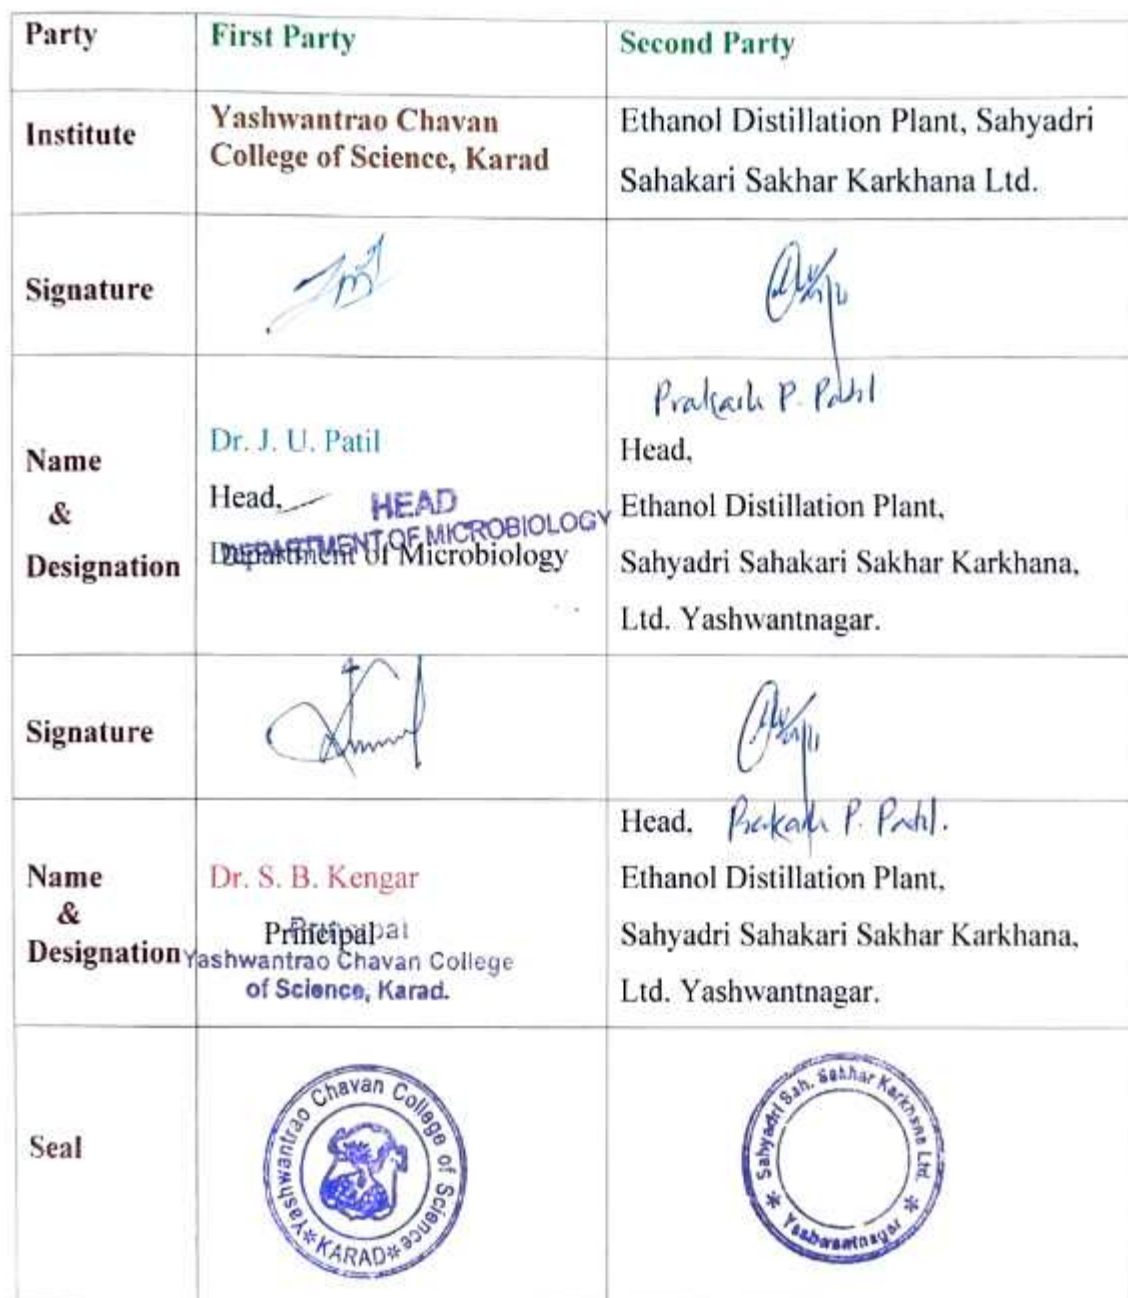 Party
First Party
Second Party
Institute
Yashwantrao Chavan
College of Science, Karad
Ethanol Distillation Plant, Sahyadri
Sahakari Sakhar Karkhana Ltd.
Signature
Name
&
Designation
Dr. J. U. Patil
Head,
Department of Microbiology
HEAD
DEPARTMENT OF MICROBIOLOGY
Prakash P. Patil
Head,
Ethanol Distillation Plant,
Sahyadri Sahakari Sakhar Karkhana,
Ltd. Yashwantnagar.
Signature
Name
&
Designation
Dr. S. B. Kengar
Principal
Principal
Yashwantrao Chavan College
of Science, Karad.
Head, Prakash P. Patil.
Ethanol Distillation Plant,
Sahyadri Sahakari Sakhar Karkhana,
Ltd. Yashwantnagar.
Seal
Yashwantrao Chavan College of Science
KARAD
Sahyadri Sah. Sakhar Karkhana Ltd.
Yashwantnagar